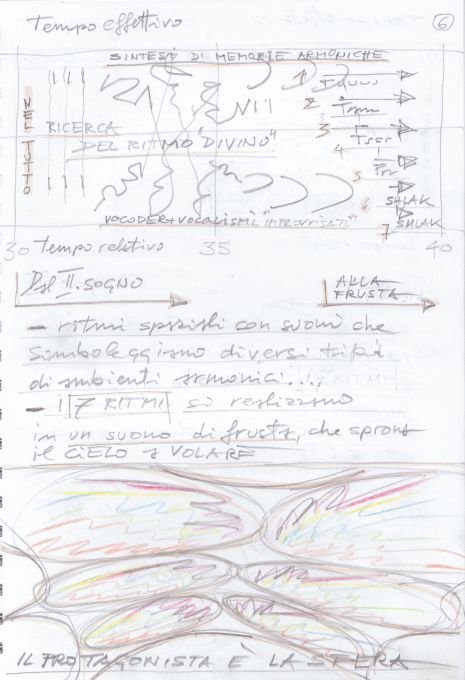 Tempo effettivo
6
SINTESI DI MEMORIE ARMONICHE
1
2
3
4
5
6 SHLAK
7 SHLAK
NEL TUTTO
RICERCA
DEL RITMO "DIVINO"
VOCODER + VOCALISMI "IMPROVISATI"
30 Tempo relativo 35 40
Dal II. SOGNO
ALLA
FRUSTA
- ritmi spaziali con suoni che
simboleggiano diversi tipi
di ambienti armonici...
- I 7 RITMI si realizzano
in un suono di frusta, che sprona
il CIELO a VOLARE
IL PROTAGONISTA È LA SFERA